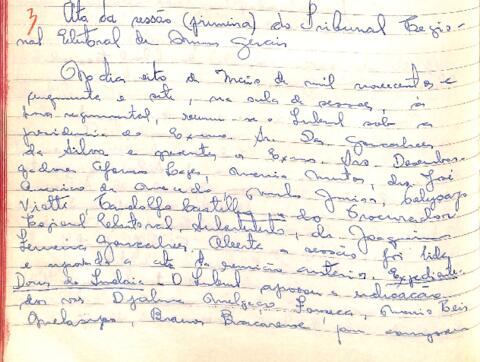 3
Ata da sessão (primeira) do Tribunal Regio-
nal Eleitoral de Minas Gerais
No dia oito de Maio de mil novecentos e
cinquenta e sete, na sala de sessões, à
hora regimental, reuniu-se o Tribunal sob a
presidencia do Exmo Sr. Des Gonçalves
da Silva e presentes os Exmos. Srs. Desembar-
gadores Afonso Lages, Merica Mattos, drs. José
Americo de Macedo, Murilo Junior,
Viotti, e do Procurador
Regional Eleitoral, Substituto, dr. Joaquim
Ferreira Gonçalves. Aberta a sessão, foi lida
e aprovada a ata da reunião anterior. Expediente
Dores do Indaiá. O Tribunal aprovou a indicação
dos srs Djalma Fonseca, Reis
para comporem